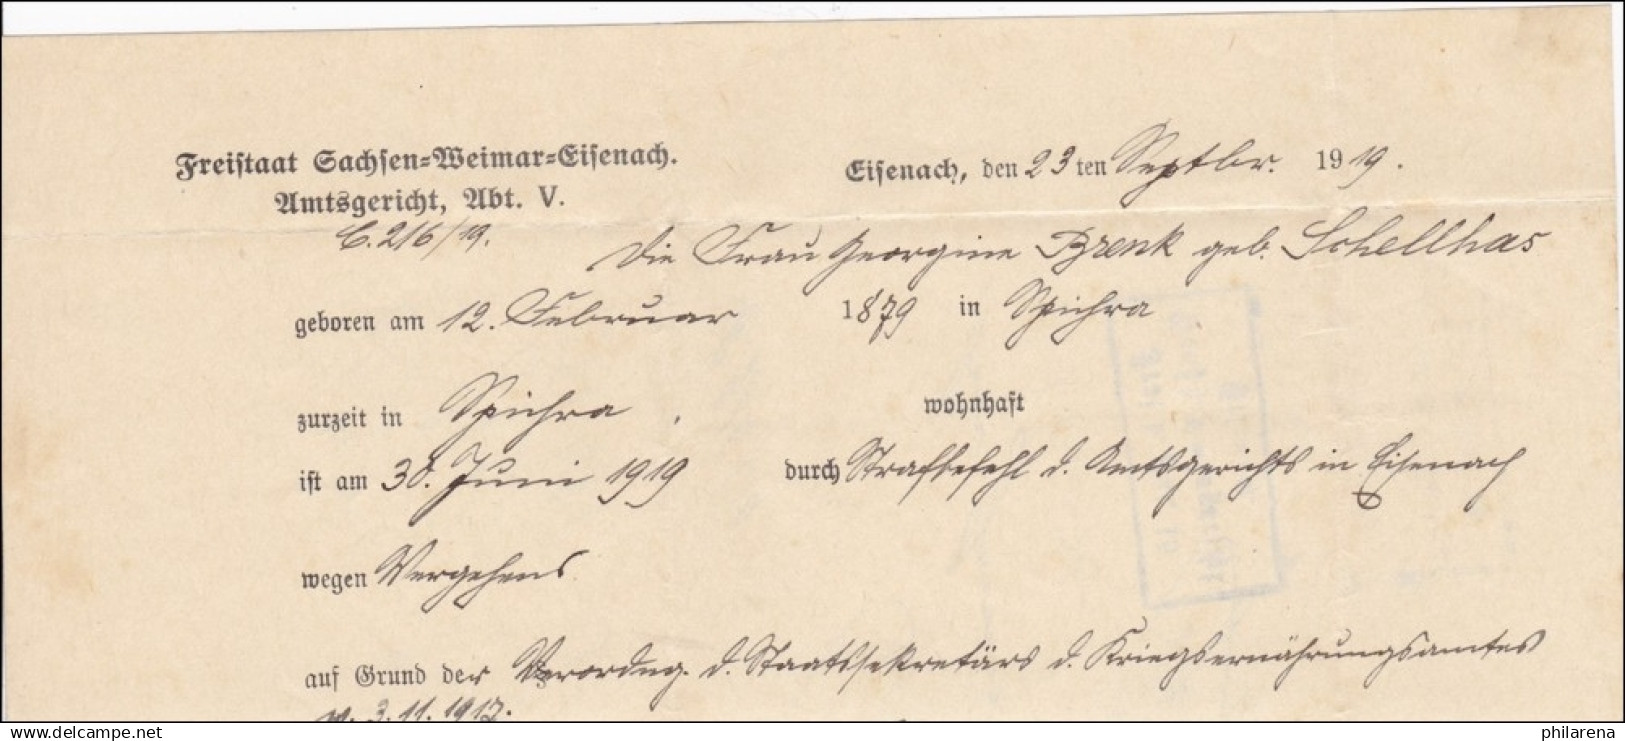 Freistaat Sachsen-Weimar-Eisenach.
Amtsgericht, Abt. V.
C. 216/19.
Eisenach, den 23ten Septbr. 1919.
Die Frau Georgine Brenk geb. Schellhas
geboren am 12. Februar 1879 in Spichra
zurzeit in Spichra. wohnhaft
ist am 30. Juni 1919 durch Strafbefehl d. Amtsgerichts in Eisenach
wegen Vergehens
auf Grund der Verordng. d. Staatssekretärs d. Kriegsernährungsamtes
v. 3.11.1917.
www.delcampe.net
philarena